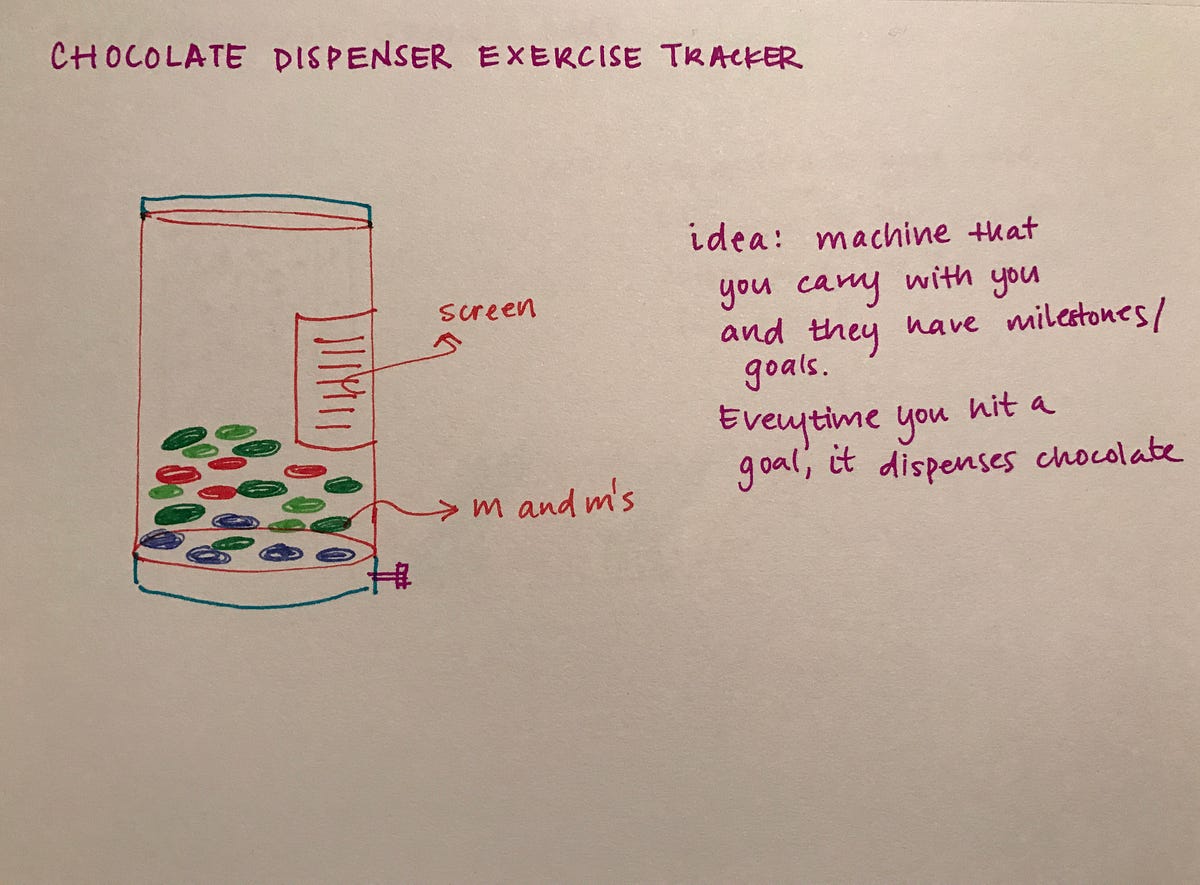 CHOCOLATE DISPENSER EXERCISE TRACKER
idea: machine that
you carry with you
and they have milestones/
goals.
Everytime you hit a
goal, it dispenses chocolate
screen
m and m's